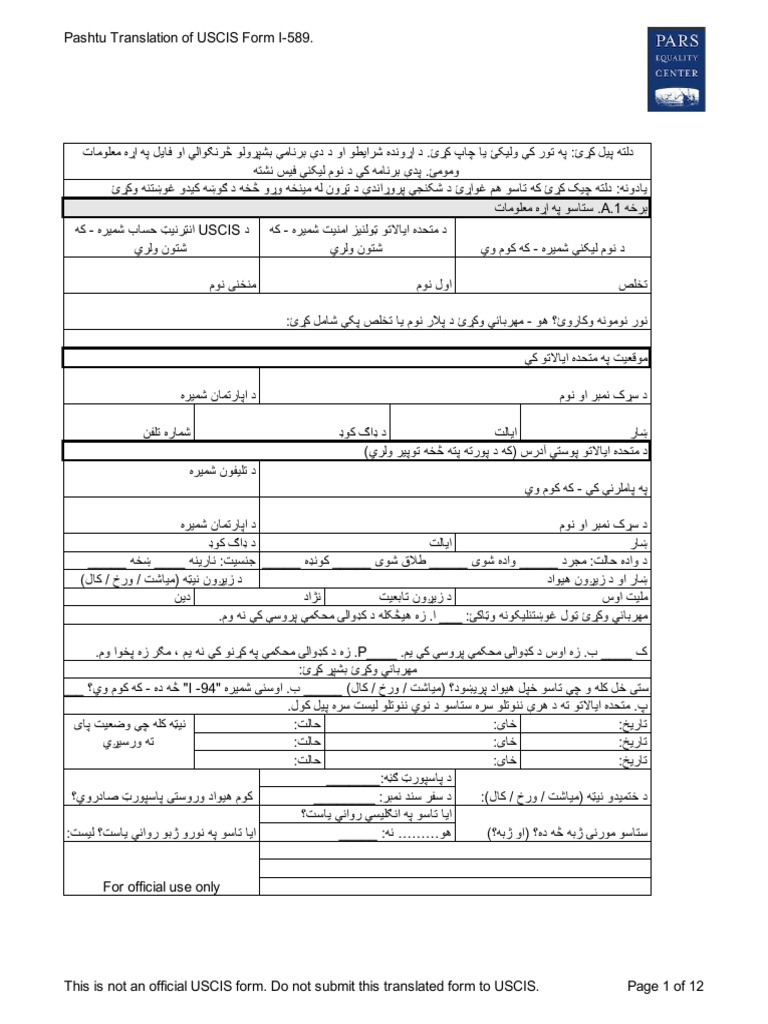 Pashtu Translation of USCIS Form I-589.
PARS
EQUALITY
CENTER
دلته پیل کړئ: په تور کې ولیکئ یا چاپ کړئ. د اړونده شرایطو او د دې برنامې بشپړولو څرنګوالي او فایل په اړه معلومات
ومومئ. پدې برنامه کې د نوم لیکنې فیس نشته
یادونه: دلته چیک کړئ که تاسو هم غواړئ د شکنجې پروړاندې د تړون له مینځه وړو څخه د ګوښه کیدو غوښتنه وکړئ
برخه A.1. ستاسو په اړه معلومات
د نوم لیکنې شمیره - که کوم وي
د متحده ایالاتو ټولنیز امنیت شمیره - که
شتون ولري
د USCIS انټرنیټ حساب شمیره - که
شتون ولري
تخلص
اول نوم
منخنی نوم
نور نومونه وکاروئ؟ هو - مهرباني وکړئ د پلار نوم یا تخلص پکې شامل کړئ:
موقعیت په متحده ایالاتو کې
د سړک نمبر او نوم
د اپارتمان شمیره
ښار
ایالت
د ډاګ کوډ
شماره تلفن
د متحده ایالاتو پوستي آدرس (که د پورته پته څخه توپیر ولري)
په پاملرنې کې - که کوم وي
د تلیفون شمیره
د سړک نمبر او نوم
د اپارتمان شمیره
ښار
ایالت
د ډاګ کوډ
د واده حالت: مجرد ______ واده شوی ______ طلاق شوی ______ کونډه ______ جنسیت: نارینه _____ ښځه ______
ښار او د زیږون هیواد
د زیږون نیټه (میاشت / ورځ / کال)
ملیت اوس
د زیږون تابعیت
نژاد
دین
مهرباني وکړئ ټول غوښتنلیکونه وټاکئ: ____ ا. زه هیڅکله د کډوالۍ محکمې پروسې کې نه وم.
ک _____ ب. زه اوس د کډوالۍ محکمې پروسې کې یم. _____P. زه د کډوالۍ محکمې په کړنو کې نه یم ، مګر زه پخوا وم.
مهرباني وکړئ بشپړ کړئ:
ستی خل کله و چې تاسو خپل هیواد پریښود؟ (میاشت / ورځ / کال) ______ ب. اوسنی شمیره "I -94" څه ده - که کوم وي؟ ___
پ. متحده ایالاتو ته د هرې ننوتلو سره ستاسو د نوي ننوتلو لیست سره پیل کول.
تاریخ:
ځای:
حالت:
نیټه کله چې وضعیت پای
ته ورسیږي
تاریخ:
ځای:
حالت:
تاریخ:
ځای:
حالت:
د ختمیدو نیټه (میاشت / ورځ / کال):
د پاسپورټ ګڼه:_______
د سفر سند نمبر: ________
کوم هیواد وروستی پاسپورټ صادروي؟
ستاسو مورنۍ ژبه څه ده؟ (او ژبه؟)
ایا تاسو په انګلیسي رواني یاست؟
هو......... نه: _____
ایا تاسو په نورو ژبو رواني یاست؟ لیست:
For official use only
This is not an official USCIS form. Do not submit this translated form to USCIS.
Page 1 of 12